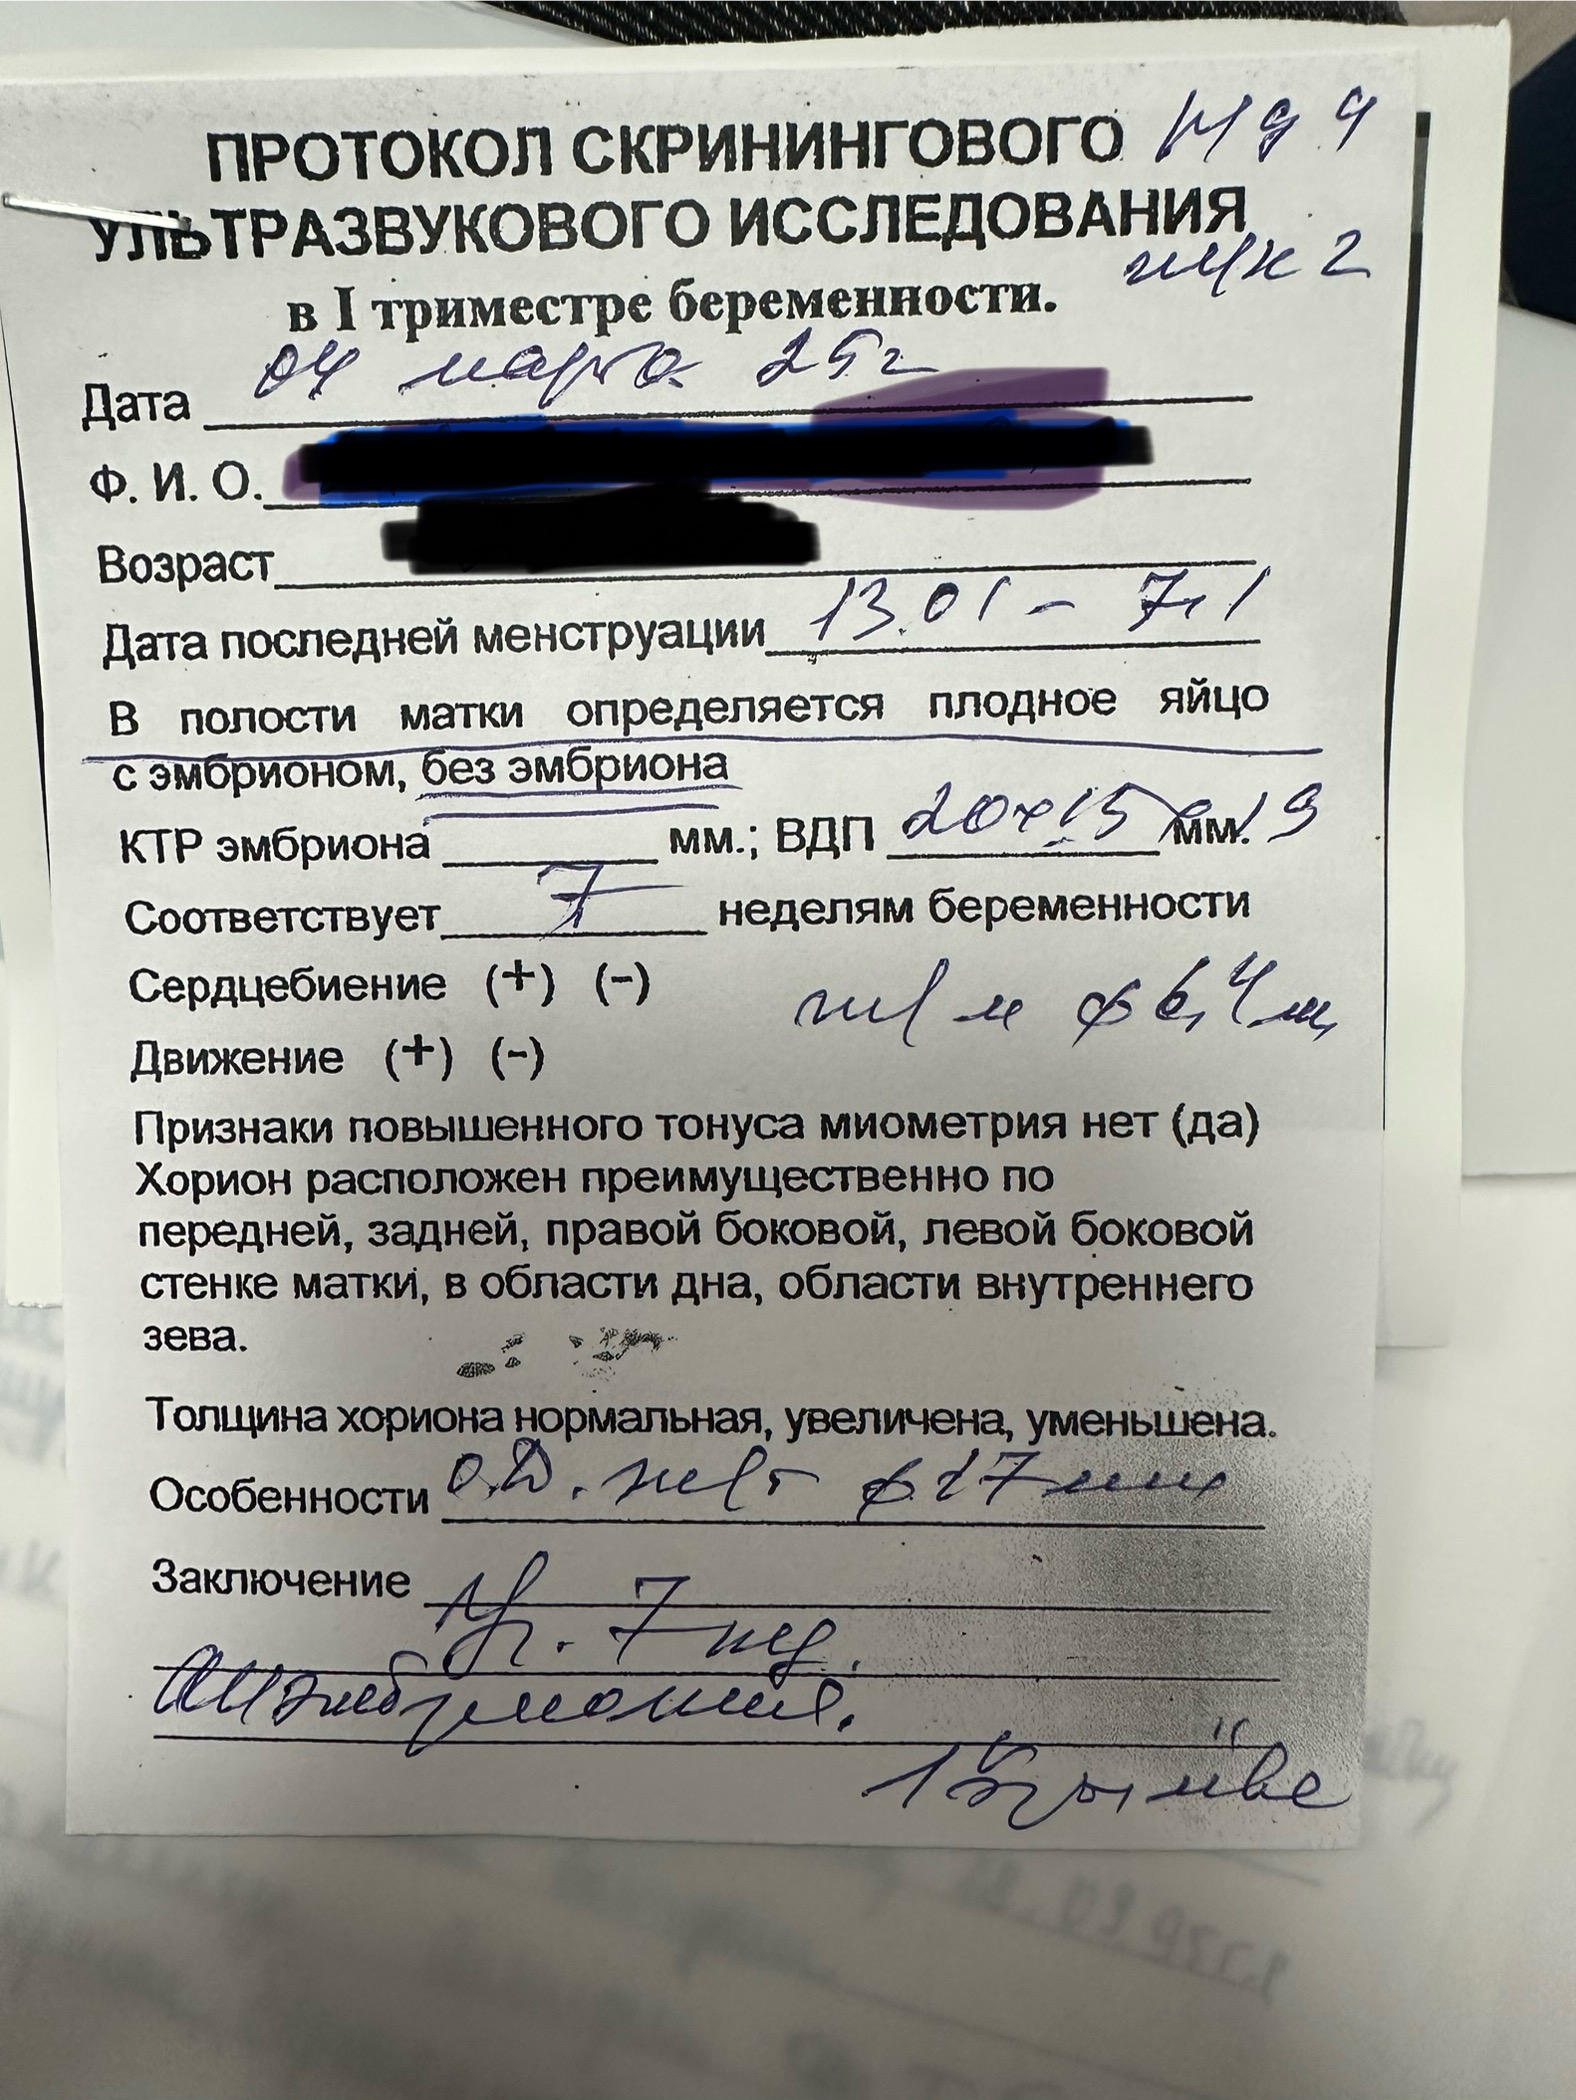 ПРОТОКОЛ СКРИНИНГОВОГО
УЛЬТРАЗВУКОВОГО ИССЛЕДОВАНИЯ
в I триместре беременности.
Дата 04 марта 25г
Ф. И. О.
Возраст
Дата последней менструации 13.01 - 7,1
В полости матки определяется плодное яйцо
с эмбрионом, без эмбриона
КТР эмбриона мм.; ВДП 20х15х19 мм.
Соответствует 7 неделям беременности
Сердцебиение (+) (-)
ж/м ø 6,4 мм
Движение (+) (-)
Признаки повышенного тонуса миометрия нет (да)
Хорион расположен преимущественно по
передней, задней, правой боковой, левой боковой
стенке матки, в области дна, области внутреннего
зева.
Толщина хориона нормальная, увеличена, уменьшена.
Особенности О.D. ж/т ø 17 мм
Заключение
7 нед.
Анэмбриония.